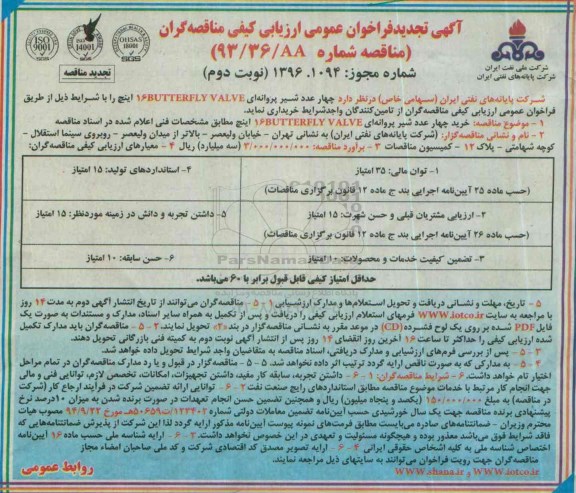 آگهی تجدیدفراخوان عمومی ارزیابی کیفی مناقصه‌گران
(مناقصه شماره ۹۳/۳۶/AA)
شماره مجوز: ۱۰۹۴. ۱۳۹۶ (نوبت دوم)
ISO 9001
ISO 14001
OHSAS 18001
SGS
تجدید مناقصه
شرکت ملی نفت ایران
شرکت پایانه‌های نفتی ایران
شرکت پایانه‌های نفتی ایران (سهامی خاص) درنظر دارد چهار عدد شیر پروانه‌ای ۱۶BUTTERFLY VALVE اینچ را با شرایط ذیل از طریق
فراخوان عمومی ارزیابی کیفی مناقصه‌گران از تامین‌کنندگان واجدشرایط خریداری نماید.
۱ - موضوع مناقصه: خرید چهار عدد شیر پروانه‌ای ۱۶BUTTERFLY VALVE اینچ مطابق مشخصات فنی اعلام شده در اسناد مناقصه
۲ - نام و نشانی مناقصه‌گزار: (شرکت پایانه‌های نفتی ایران) به نشانی تهران - خیابان ولیعصر - بالاتر از میدان ولیعصر - روبروی سینما استقلال -
کوچه شهامتی - پلاک ۱۲ - کمیسیون مناقصات ۳ - برآورد مناقصه: ۳/۰۰۰/۰۰۰/۰۰۰ (سه میلیارد) ریال ۴ - معیارهای ارزیابی کیفی مناقصه‌گران:
۱- توان مالی: ۳۵ امتیاز
(حسب ماده ۲۵ آیین‌نامه اجرایی بند ج ماده ۱۲ قانون برگزاری مناقصات)
۴- استانداردهای تولید: ۱۵ امتیاز
۲- ارزیابی مشتریان قبلی و حسن شهرت: ۱۵ امتیاز
(حسب ماده ۲۶ آیین‌نامه اجرایی بند ج ماده ۱۲ قانون برگزاری مناقصات)
۵- داشتن تجربه و دانش در زمینه موردنظر: ۱۵ امتیاز
۳- تضمین کیفیت خدمات و محصولات: ۱۰ امتیاز
۶- حسن سابقه: ۱۰ امتیاز
حداقل امتیاز کیفی قابل قبول برابر با ۶۰ می‌باشد.
۵ - تاریخ، مهلت و نشانی دریافت و تحویل استعلام‌ها و مدارک ارزشیابی ۱ - ۵ - مناقصه‌گران می‌توانند از تاریخ انتشار آگهی دوم به مدت ۱۴ روز
با مراجعه به سایت WWW.iotco.ir فرمهای استعلام ارزیابی کیفی را دریافت و پس از تکمیل به همراه سایر اسناد، مدارک و مستندات به صورت یک
فایل PDF شده بر روی یک لوح فشرده (CD) در موعد مقرر به نشانی مناقصه‌گزار در بند «۲» تحویل نمایند. ۲ - ۵ - مناقصه‌گران باید مدارک تکمیل
شده ارزیابی کیفی را حداکثر تا ساعت ۱۶ آخرین روز انقضای ۱۴ روز پس از انتشار آگهی نوبت دوم به کمیته فنی بازرگانی تحویل دهند.
۳ - ۵ - پس از بررسی فرم‌های ارزشیابی و مدارک دریافتی، اسناد مناقصه به متقاضیان واجد شرایط تحویل داده خواهد شد.
۴ - ۵ - به مدارکی که به صورت ناقص ارایه گردد ترتیب اثر داده نخواهد شد. ۵ - ۵ - مناقصه‌گزار در قبول و یا رد مدارک مناقصه‌گران در تمام مراحل
اختیار تام خواهد داشت. ۶ - شرایط مناقصه‌گران: ۱ - ۶ - داشتن تجربه، سابقه کار مفید، داشتن تجهیزات، امکانات، تخصص لازم، توانایی فنی و مالی
جهت انجام کار مرتبط با خدمات موضوع مناقصه مطابق استانداردهای رایج صنعت نفت ۲ - ۶ - توانایی ارائه تضمین شرکت در فرآیند ارجاع کار (شرکت
در مناقصه) به مبلغ ۱۵۰/۰۰۰/۰۰۰ (یکصد و پنجاه میلیون) ریال و همچنین تضمین حسن انجام تعهدات در صورت برنده شدن به میزان ۱۰درصد نرخ
پیشنهادی برنده مناقصه جهت یک سال خورشیدی حسب آیین‌نامه تضمین معاملات دولتی شماره ۱۲۳۴۰۲/ت۵۰۶۵۹هـ مورخ ۹۴/۹/۲۲ مصوب هیات
محترم وزیران - ضمانتنامه‌های صادره می‌بایست مطابق فرمت‌های نمونه پیوست آیین‌نامه مذکور ارایه گردد لذا این شرکت از پذیرش ضمانتنامه‌هایی که
فاقد شرایط فوق می‌باشد معذور بوده و هیچگونه مسئولیت و تعهدی در این خصوص نخواهد داشت. ۳ - ۶ - ارایه شناسه ملی حسب ماده ۱۶ آیین‌نامه
اختصاص شناسه ملی به کلیه اشخاص حقوقی ایرانی ۴ - ۶ - ارایه تصویر مصدق کد اقتصادی شرکت و کد ملی صاحبان امضاء مجاز
مناقصه‌گران جهت رویت فراخوان می‌توانند به سایتهای ذیل مراجعه نمایند.
WWW.iotco.ir و WWW.shana.ir
روابط عمومی